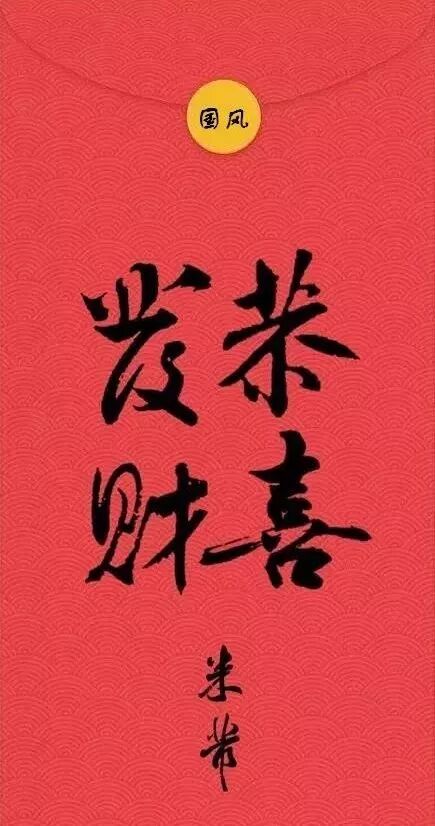 国风
恭喜
發财
米芾